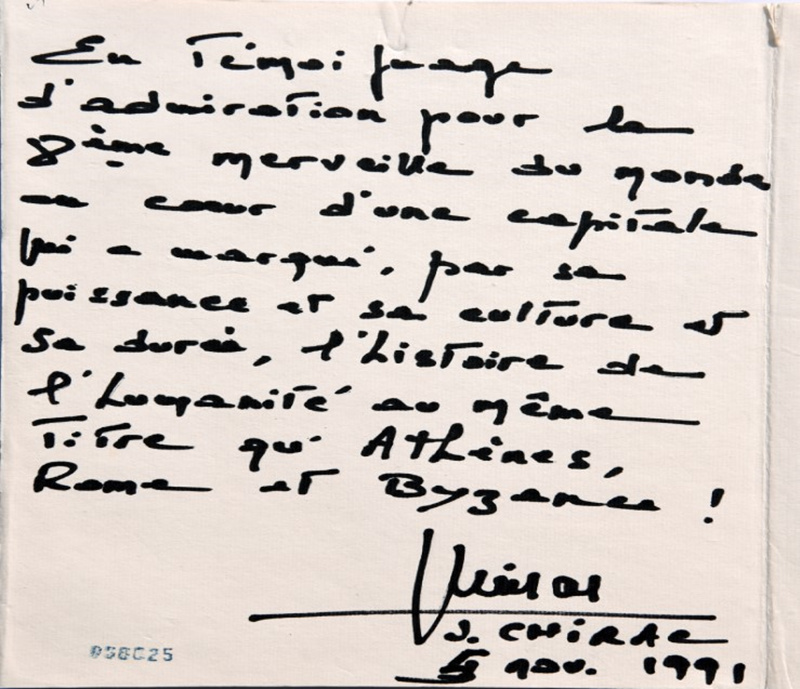 En Témoignage
d'admiration pour la
8ème merveille du monde
au cœur d'une capitale
qui a marqué, par sa
puissance et sa culture et
sa durée, l'histoire de
l'humanité au même
Titre qu' Athènes,
Rome et Byzance !
J. CHIRAC
nov. 1991
058C25